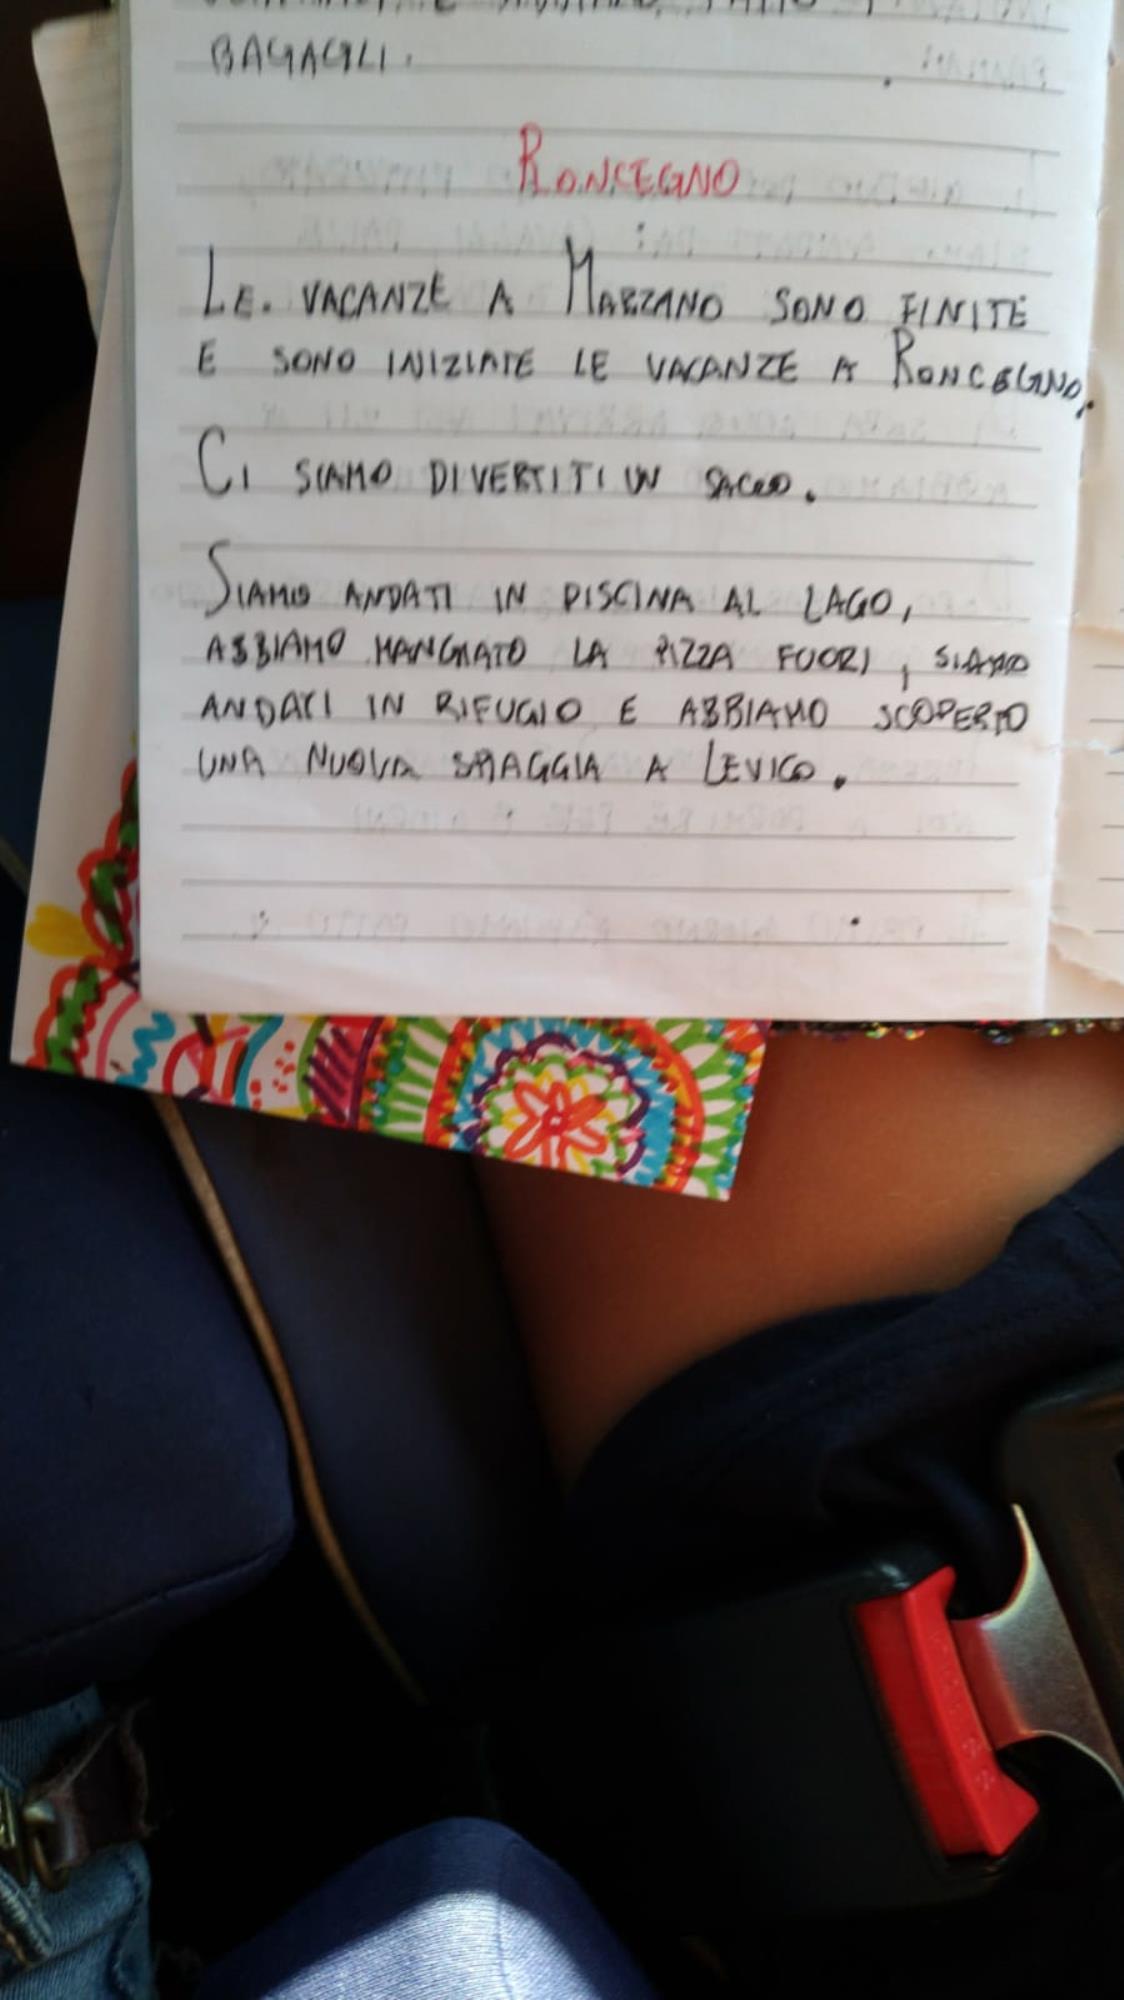 BAGAGLI.
RONCEGNO
LE. VACANZE A MARZANO SONO FINITE
E SONO INIZIATE LE VACANZE A RONCEGNO.
CI SIAMO DIVERTITI UN SACCO.
SIAMO ANDATI IN PISCINA AL LAGO,
ABBIAMO MANGIATO LA PIZZA FUORI, SIAMO
ANDATI IN RIFUGIO E ABBIAMO SCOPERTO
UNA NUOVA SPIAGGIA A LEVICO.